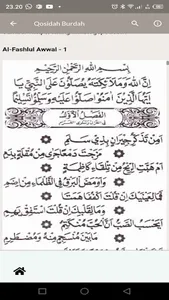 23.20
Qosidah Burdah
Al-Fashlul Awwal - 1
بِسْمِ اللهِ الرَّحْمٰنِ الرَّحِيْمِ
إِنَّ اللهَ وَمَلَائِكَتَهُ يُصَلُّوْنَ عَلَى النَّبِيِّ يَا
أَيُّهَا الَّذِيْنَ آمَنُوْا صَلُّوْا عَلَيْهِ وَسَلِّمُوْا تَسْلِيْمًا
الْفَصْلُ الْأَوَّلُ
أَمِنْ تَذَكُّرِ جِيْرَانٍ بِذِيْ سَلَمِ
مَزَجْتَ دَمْعًا جَرَى مِنْ مُقْلَةٍ بِدَمِ
أَمْ هَبَّتِ الرِّيْحُ مِنْ تِلْقَاءِ كَاظِمَةٍ
وَأَوْمَضَ الْبَرْقُ فِي الظَّلْمَاءِ مِنْ إِضَمِ
فَمَا لِعَيْنَيْكَ إِنْ قُلْتَ اكْفُفَا هَمَتَا
وَمَا لِقَلْبِكَ إِنْ قُلْتَ اسْتَفِقْ يَهِمِ
أَيَحْسَبُ الصَّبُّ أَنَّ الْحُبَّ مُنْكَتِمٌ
مَا بَيْنَ مُنْسَجِمٍ مِنْهُ وَمُضْطَرِمِ